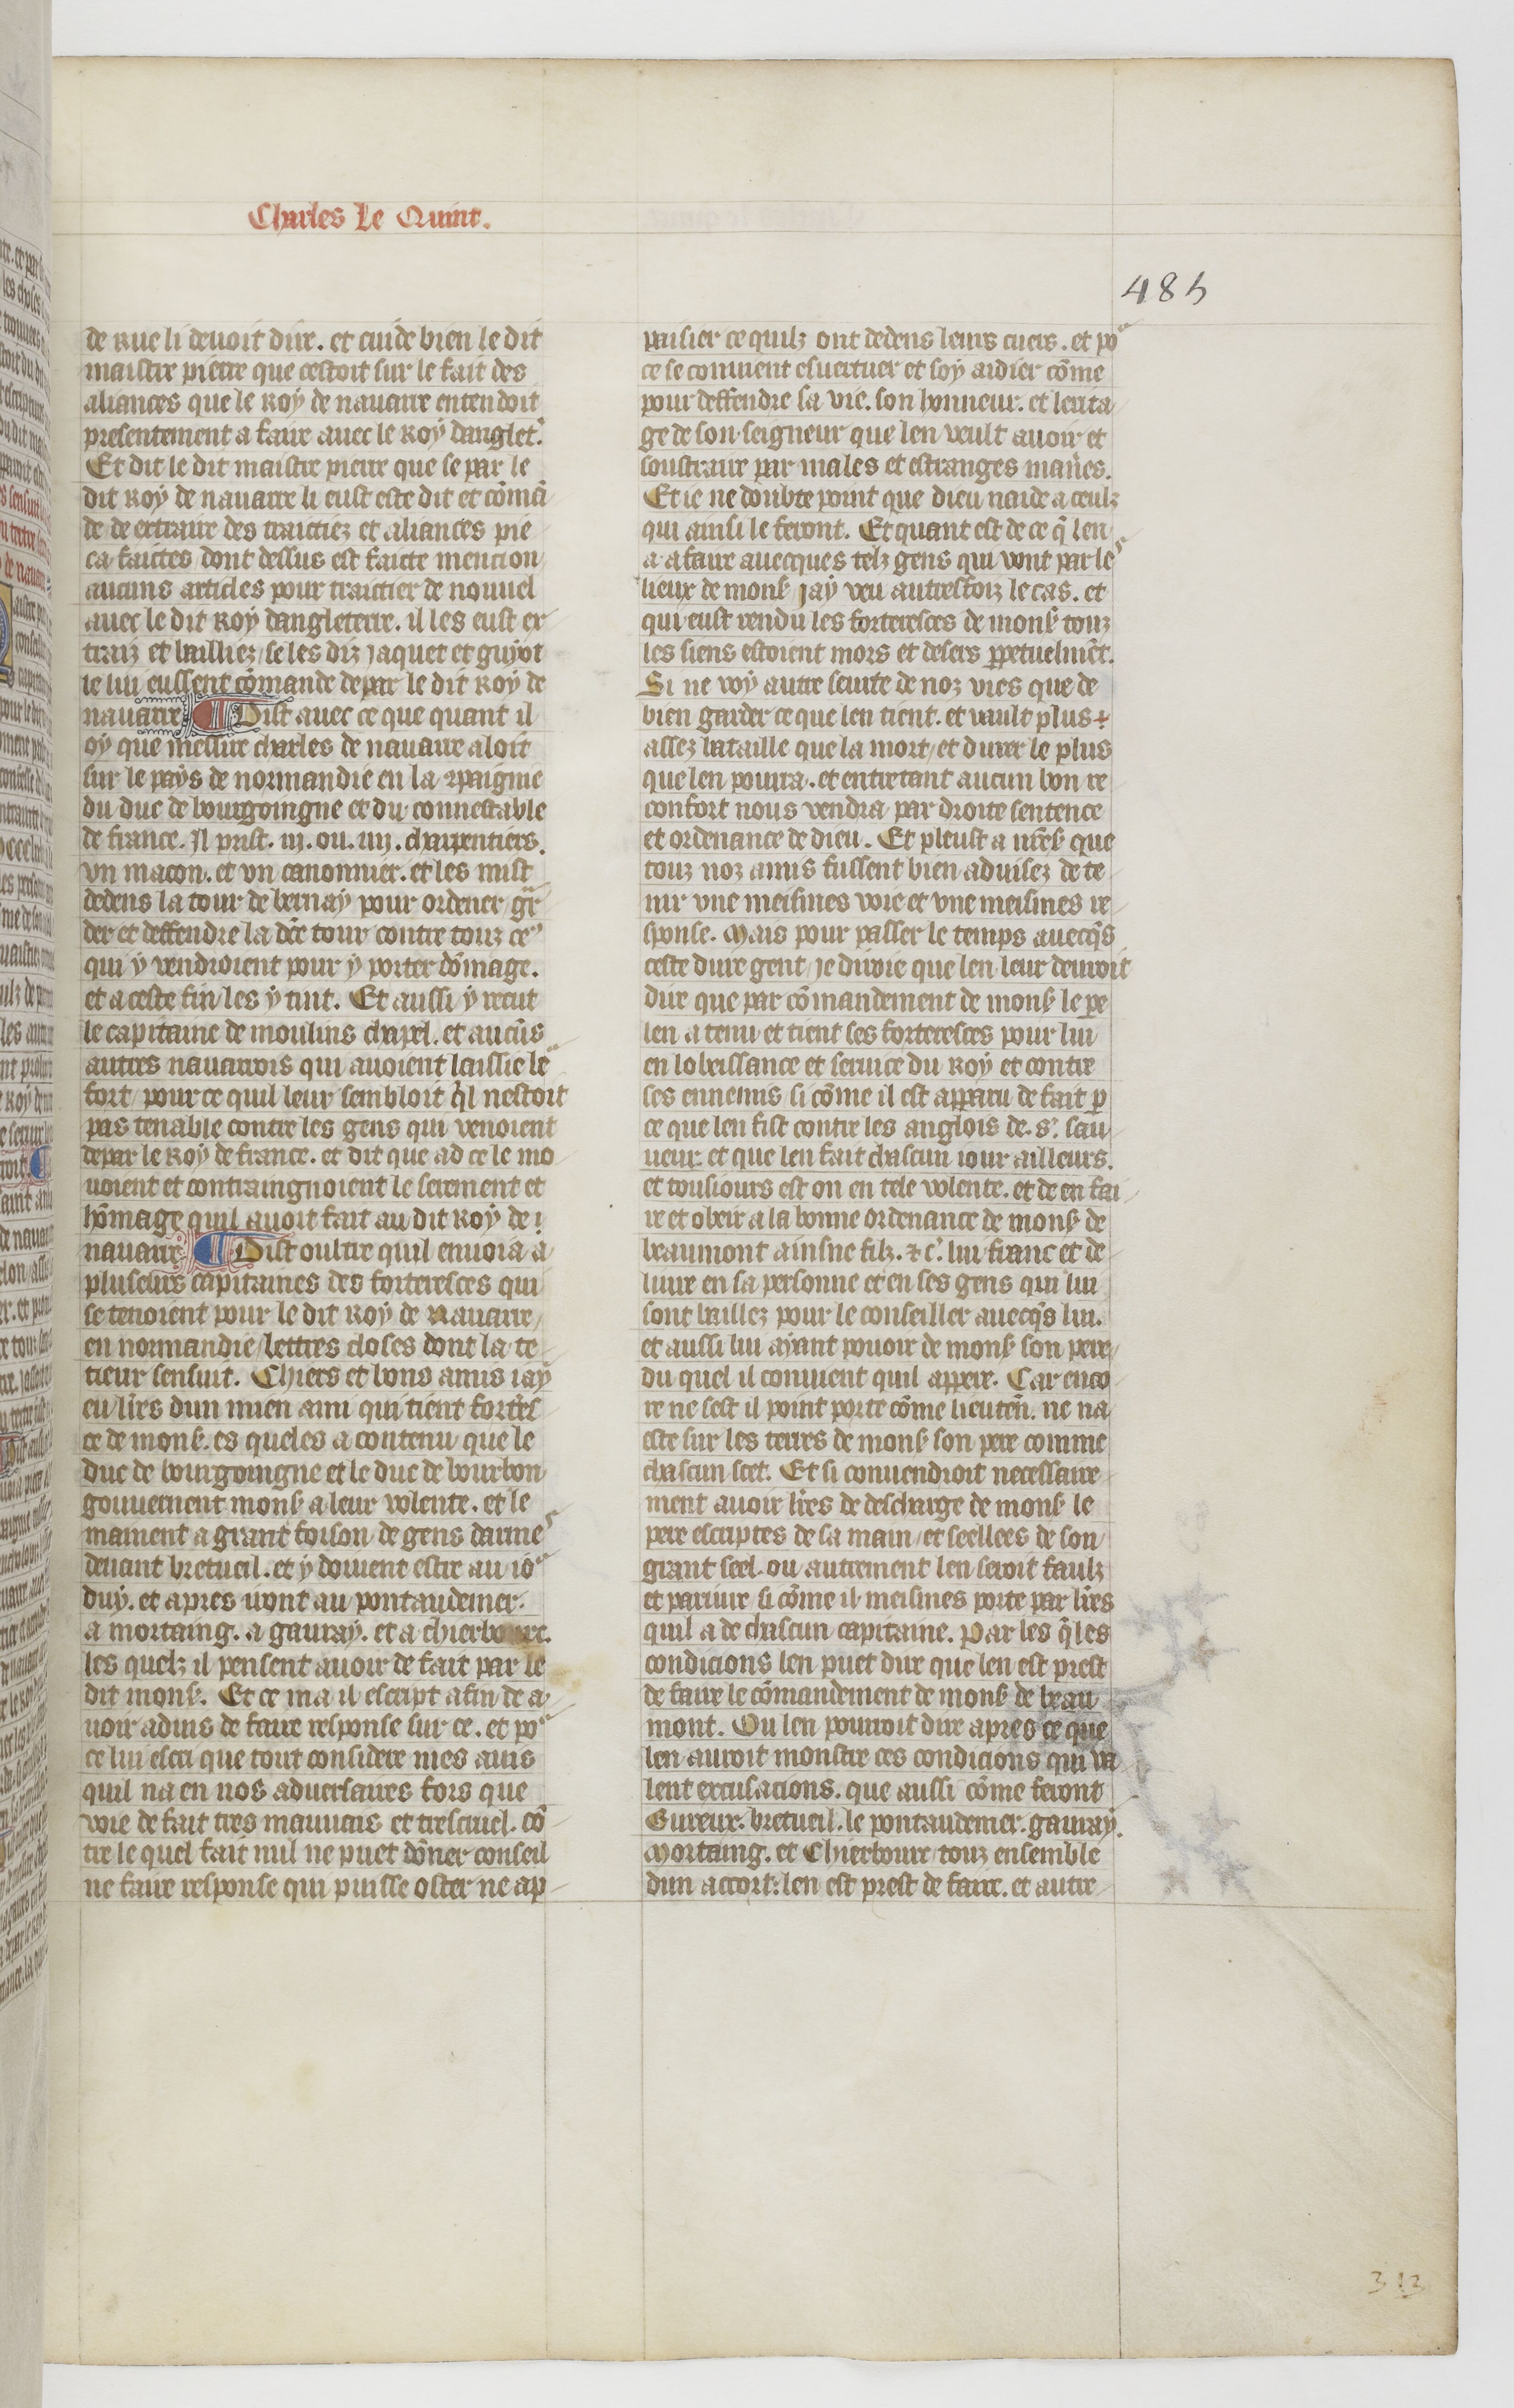 Charles Le Quint.
485
de rue li devoit dire. et cuide bien le dit
maistre pierre que cestoit sur le fait des
aliances que le Roy de navarre entendoit
presentement a faire avec le Roy danglet.
Et dit le dit maistre pierre que se par le
dit Roy de navarre li eust este dit et cõmã
de de extraire des traictiez et aliances pie
ca faictes dont dessus est faicte mencion
aucuns articles pour traictier de nouvel
avec le dit Roy dangleterre. il les eust ex
traiz et bailliez se les diz Jaquet et guyot
le lui eussent cõmande depar le dit Roy de
navarre ¶ Dist avec ce que quant il
oy que messire charles de navarre aloit
sur le pays de normandie en la ꝯpaignie
du duc de bourgoingne et du connestable
de france. Il prist. iij. ou. iiij. charpentiers.
vn macon. et vn canonnier. et les mist
dedens la tour de bernay pour ordener gr
der et deffendre la dcẽ tour contre touz ceˢ
qui y vendroient pour y porter dõmage.
et a ceste fin les y tint. Et aussi y recut
le capitaine de moulins chapel. et aucũs
autres navarrois qui avoient laissie le
fort pource quil leur sembloit q̃l nestoit
pas tenable contre les gens qui venoient
depar le Roy de france. et dit que ad ce le mo
voient et contraingnoient le serement et
hõmage quil avoit fait au dit Roy de
navarre ¶ Dist oultre quil envoia a
pluseurs capitaines des forteresces qui
se tenoient pour le dit Roy de Navarre
en normandie lettres closes dont la te
neur sensuit. Chiers et bons amis iay
eu lr̃es dun mien ami qui tient forteres
ce de monẜ. es queles a contenu que le
duc de bourgoingne et le duc de bourbon
gouvernent monẜ a leur volente. et le
mainent a grant foison de gens darmeˢ
devant bretueil. et y doivent estre au io
duy. et apres vont au pontaudemer.
a mortaing. a gavray. et a chierbourc.
les quelz il pensent avoir de fait par le
dit monẜ. Et ce ma il escript afin de a
voir advis de faire response sur ce. et po
ce lui escri que tout considere mes avis
quil na en nos adversaires fors que
voie de fait tres mauvais et trescruel. cõ
tre le quel fait nul ne puet dõner conseil
ne faire response qui puisse oster ne ap
paisier ce quilz ont dedens leurs cuers. et po
ce se convient esvertuer et soy aidier cõme
pour deffendre sa vie. son honneur. et lerita
ge de son seigneur que len veult avoir et
soustraire par males et estranges manẽs.
Et ie ne doubte point que dieu naide a ceulz
qui ainsi le feront. Et quant est de ce q̃ len
a a faire avecques telz gens qui vont par leˢ
lieux de monẜ jay veu autresfoiz le cas. et
qui eust rendu les forteresces de monẜ touz
les siens estoient mors et desers ꝑpetuelmẽt.
Si ne voy autre seurte de noz vies que de
bien garder ce que len tient. et vault plus
assez bataille que la mort et durer le plus
que len pourra. et entretant aucun bon re
confort nous vendra par droite sentence
et ordenance de dieu. Et pleust a nr̃eẜ que
touz noz amis fussent bien advisez de te
nir vne meismes voie et vne meismes re
sponse. Mais pour passer le temps avecq̃s
ceste dure gent je diroie que len leur devroit
dire que par cõmandement de monẜ le pe
len a tenu et tient ses forteresces pour lui
en lobeissance et service du Roy et contre
ses ennemis si cõme il est apparu de fait ꝑ
ce que len fist contre les anglois de. s. sau
veur. et que len fait chascun iour ailleurs.
et tousiours est on en tele volente. et de en fai
re et obeir a la bonne ordenance de monẜ de
beaumont ainsne filz. ⁊ c. lui franc et de
livre en sa personne et en ses gens qui lui
sont baillez pour le conseiller avecq̃s lui.
et aussi lui ayant povoir de monẜ son pere
du quel il convient quil appere. Car enco
re ne sest il point porte cõme lieuteñ. ne na
este sur les terres de monẜ son pere comme
chascun scet. Et si convendroit necessaire
ment avoir lr̃es de descharge de monẜ le
pere escriptes de sa main et seellees de son
grant seel. ou autrement len seroit faulz
et pariure si cõme il meismes porte par lr̃es
quil a de chascun capitaine. Par les q̃les
condicions len puet dire que len est prest
de faire le cõmandement de monẜ de beau
mont. Ou len pourroit dire apres ce que
len auroit monstre ces condicions qui va
lent excusacions. que aussi cõme feront
Evreux. bretueil. le pontaudemer. gavray.
Mortaing. et Chierbourc touz ensemble
dun accort. len est prest de faire. et autre
313